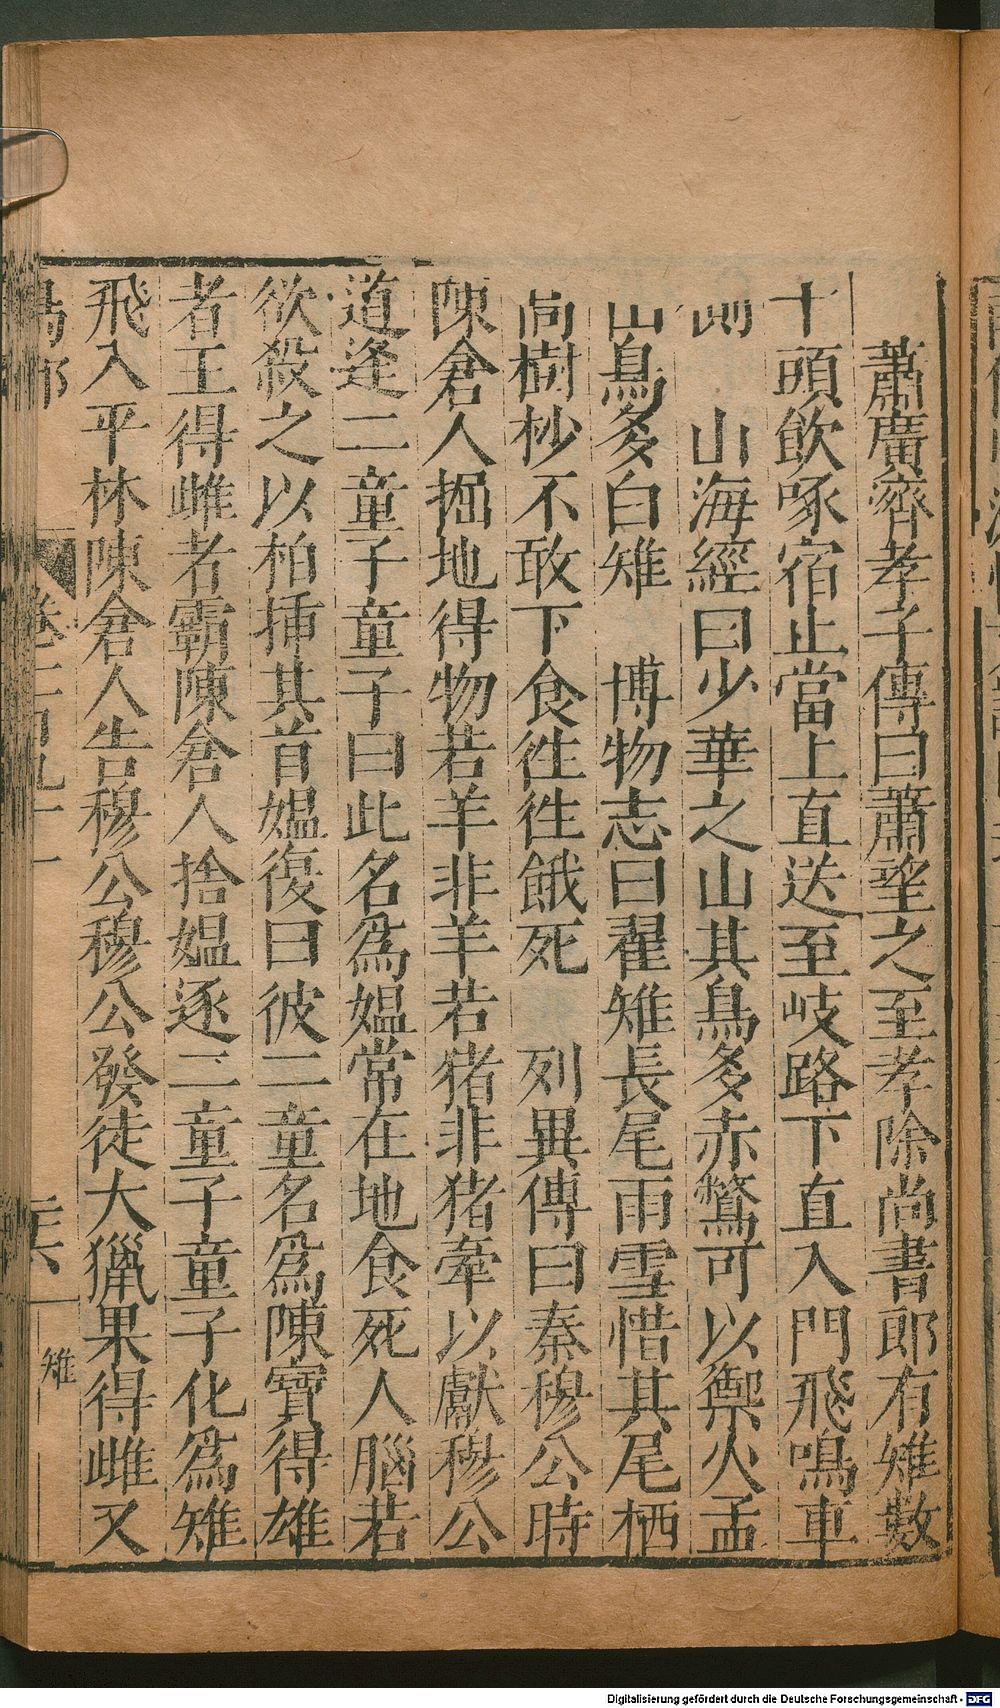 蕭廣濟孝子傳曰蕭望之至孝除尚書郎有雉數
十頭飲啄宿止當上直送至岐路下直入門飛鳴車
前　山海經曰少華之山其鳥多赤鷩可以禦火孟
山鳥多白雉　博物志曰翟雉長尾雨雪惜其尾栖
高樹杪不敢下食徃徃餓死　列異傳曰秦穆公時
陳倉人掘地得物若羊非羊若猪非猪牽以獻穆公
道逢二童子童子曰此名爲媼常在地食死人腦若
欲殺之以柏揷其首媼復曰彼二童名爲陳寶得雄
者王得雌者霸陳倉人捨媼逐二童子童子化爲雉
飛入平林陳倉人告穆公穆公發徒大獵果得雌又
鳥部　卷
雉
Digitalisierung gefördert durch die Deutsche Forschungsgemeinschaft - DFG